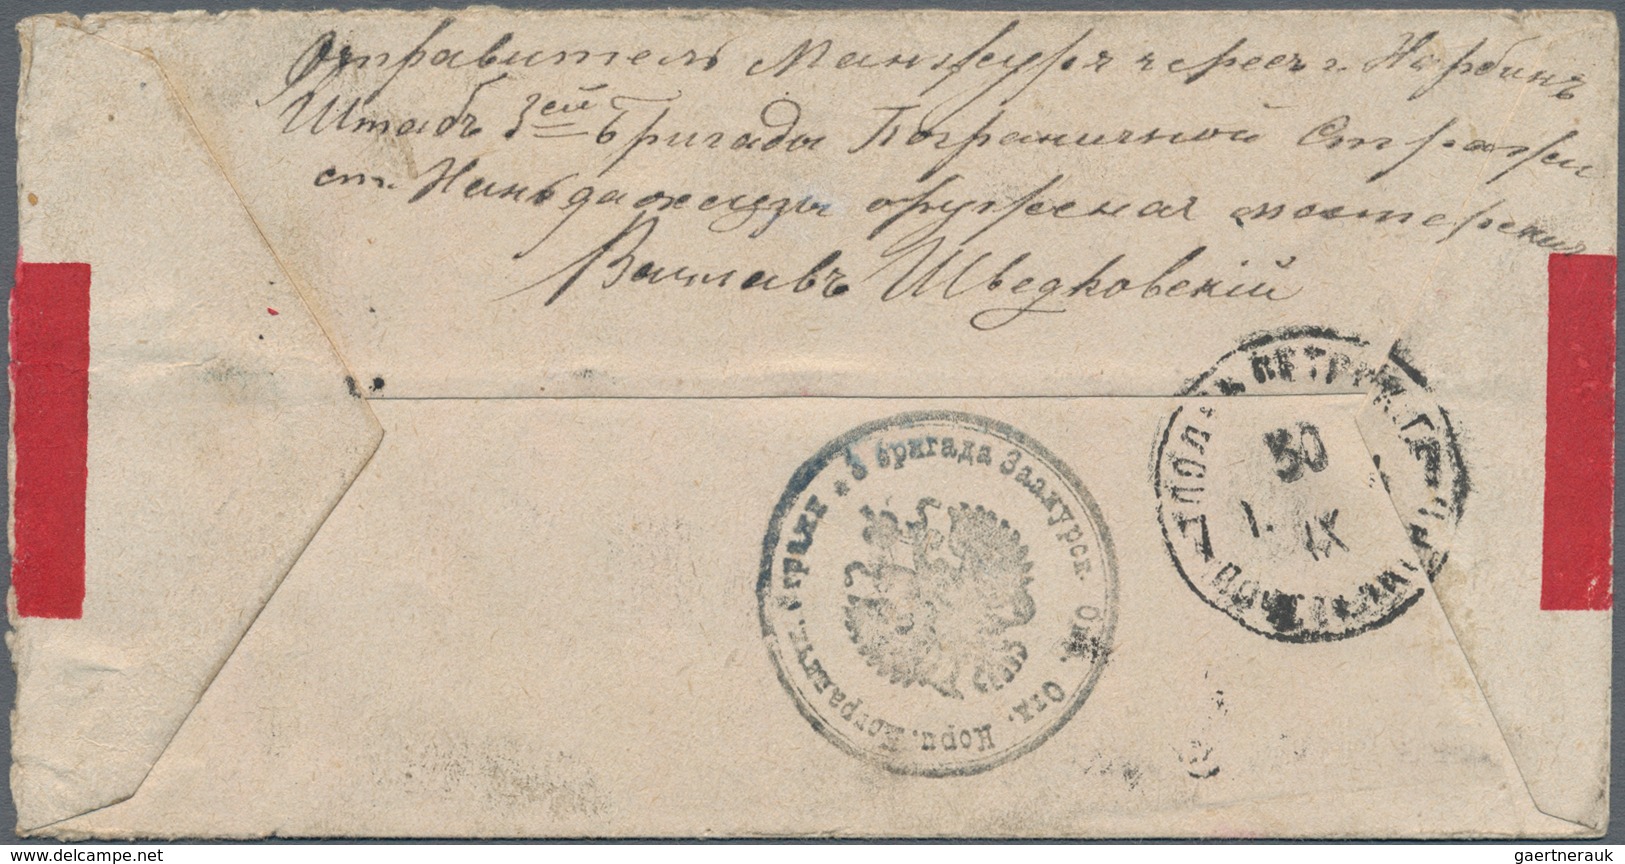 Отправитель Манжурья чересъ г. Харбинъ
Штабъ 3ей бригады Пограничной Стражи
ст. Ханьдаохедзы оружейная мастерская
Вацлавъ Шведковскій
3 бригада Заамурск. Окр. Отд. Корп. Погранич. стражи
30
IX
gaertnerauk